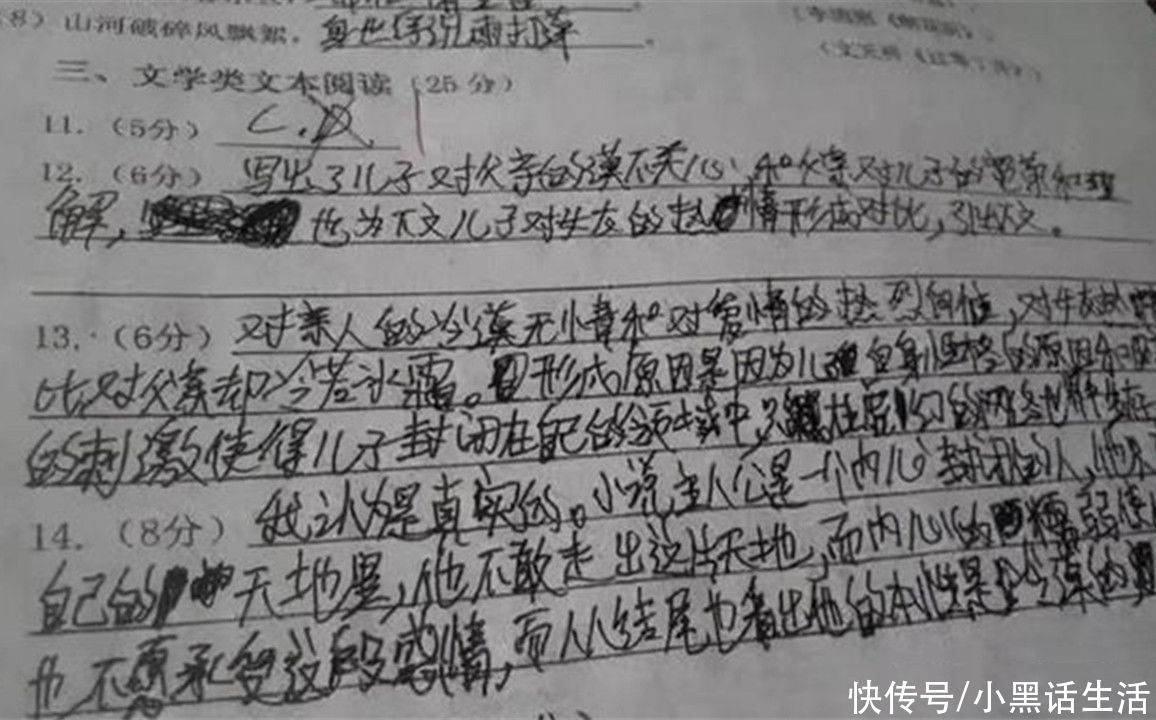 (8) 山河破碎风飘絮，身世浮沉雨打萍。
三、文学类文本阅读（25分）
11.（5分） C.D.
12.（6分） 写出了儿子对父亲的漠不关心，和父亲对儿子的宠爱和理
解，也为下文儿子对女友的热情形成对比，引出下文。
13.（6分） 对亲人的冷漠无情和对爱情的热烈向往，对女友热
比对父亲却冷若冰霜。形成原因是因为儿自身性格的原因和
的刺激使得儿子封闭在自己的领域中，只
14.（8分） 我认为是真实的。小说主人公是一个内心封闭的人，他
自己的天地里，他不敢走出这片天地，而内心的懦弱使
他不愿承受这段感情，而从结尾也看出他的本性是冷漠的
快传号/小黑话生活